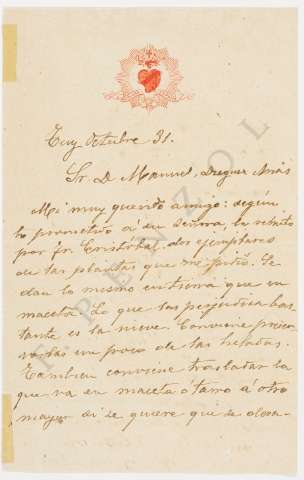 Tuy Octubre 31.
Sr. D. Manuel Diegues Arias
Mi muy querido amigo: según
lo prometido á su señora, le remito
por fr. Cristobal dos ejemplares
de las plantas que me pidió. Se
dan lo mismo en tierra que en
maceta. Lo que las perjudica bas-
tante es la nieve. Conviene preser-
varlas un poco de las heladas.
Tambien conviene trasladar la
que va en maceta ó tarro á otro
mayor si se quiere que se desa-
F. PENZOL